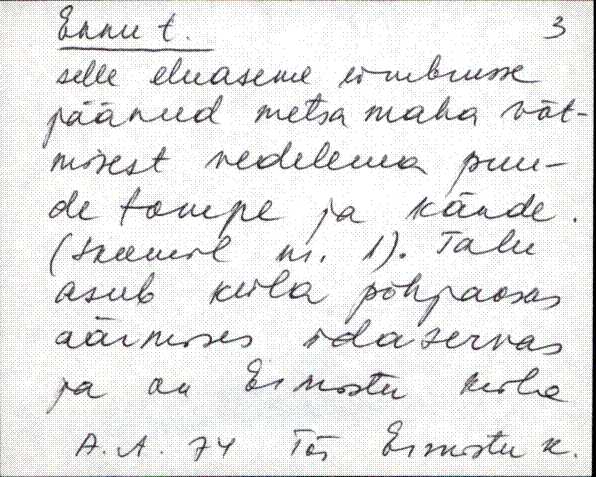 Ennu t. 3
selle eluaseme ümbrusse
jäänud metsa maha võt-
misest vedelema puu-
de tompe ja kände.
(skeemil nr. 1). Talu
asub küla põhjaosas
äärmises idaservas
ja on Ermistu küla
A.A. 74 Tõs Ermistu k.